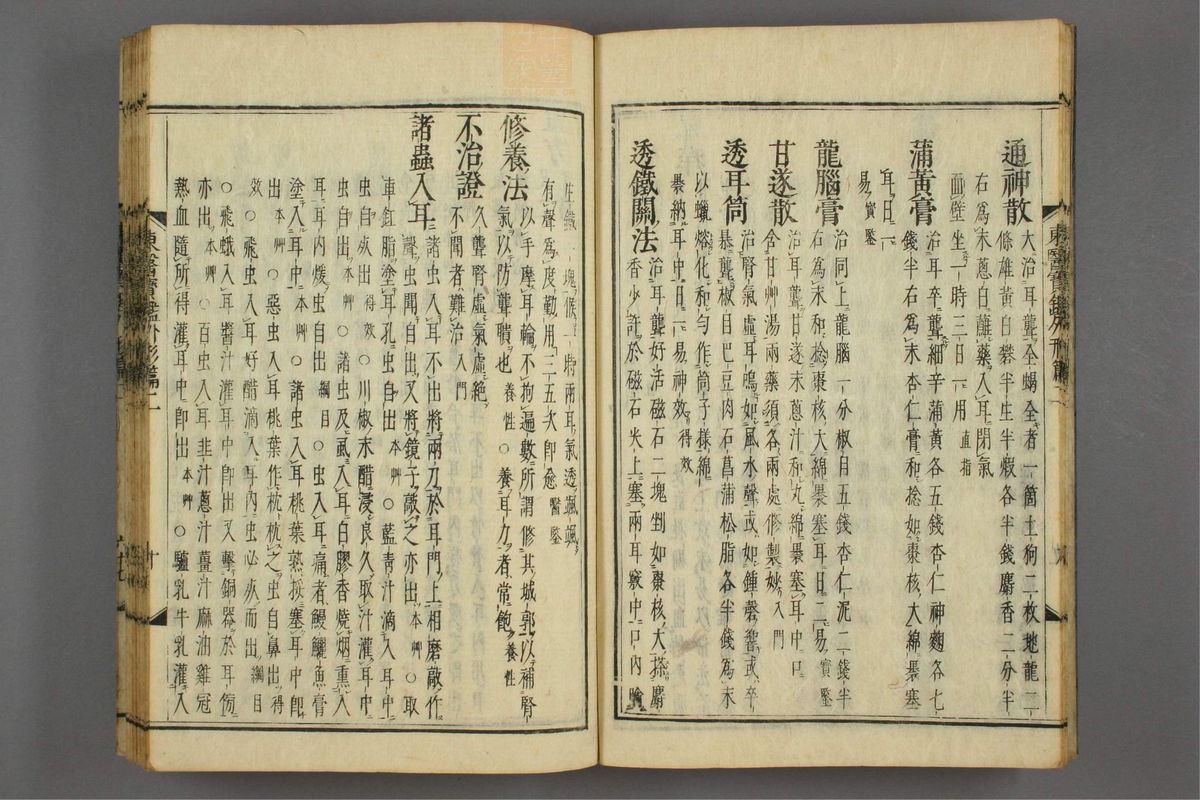 通神散 大治耳聾全蝎全者一箇土狗二枚地龍二
條雄黃白礬半生半煆各半錢麝香二分半
右爲末蔥白蘸藥入耳閉氣
面壁坐一時三日一用 直指
蒲黃膏 治耳卒聾細辛蒲黃各五錢杏仁神麴各七
錢半右爲末杏仁膏和捻如棗核大綿裹塞
耳日一
易 實鑒
龍腦膏 治同上龍腦一分椒目五錢杏仁泥二錢半
右爲末和捻棗核大綿裹塞耳日二易 實鑒
甘遂散 治耳聾甘遂末蔥汁和丸綿裹塞耳中口
含甘艸湯兩藥須各兩處修製妙 入門
透耳筒 治腎氣虛耳鳴如風水聲或如鍾磬響或卒
暴聾椒目巴豆肉石菖蒲松脂各半錢爲末
以蠟熔化和勻作筒子樣綿
裹納耳中日一易神效 得效
透鐵關法 治耳聾好活磁石二塊剉如棗核大搽麝
香少許於磁石尖上塞兩耳竅中口內噙
生鐵一塊候一時兩耳氣透颯颯
有聲爲度勤用三五次卽愈 醫鑒
修養法 以手摩耳輪不拘遍數所謂修其城郭以補腎
氣以防聾聵也 養性 ○養耳力者常飽 養性
不治證 久聾腎虛氣虛絶
不聞者難治 入門
諸蟲入耳 諸虫入耳不出將兩刀於耳門上相磨敲作
聲虫聞自出又將鏡子敲之亦出 本艸 ○取
車釭脂塗耳孔虫自出 本艸 ○藍青汁滴入耳中
虫自死出 得效 ○川椒末醋浸良久取汁灌耳中
虫自出 本艸 ○諸虫及虱入耳白膠香燒烟熏入
耳耳內煖虫自出 綱目 ○虫入耳痛者鰻鱺魚膏
塗入耳中 本艸 ○諸虫入耳桃葉熟挼塞耳中卽
出 本艸 ○惡虫入耳桃葉作枕枕之虫自鼻出 得
效 ○飛虫入耳好醋滴入耳內虫必死而出 綱目
○飛蛾入耳醬汁灌耳中卽出又擊銅器於耳傍
亦出 本艸 ○百虫入耳韭汁蔥汁薑汁麻油雞冠
熱血隨所得灌耳中卽出 本艸 ○驢乳牛乳灌入
東醫寶鑑外形篇二
十